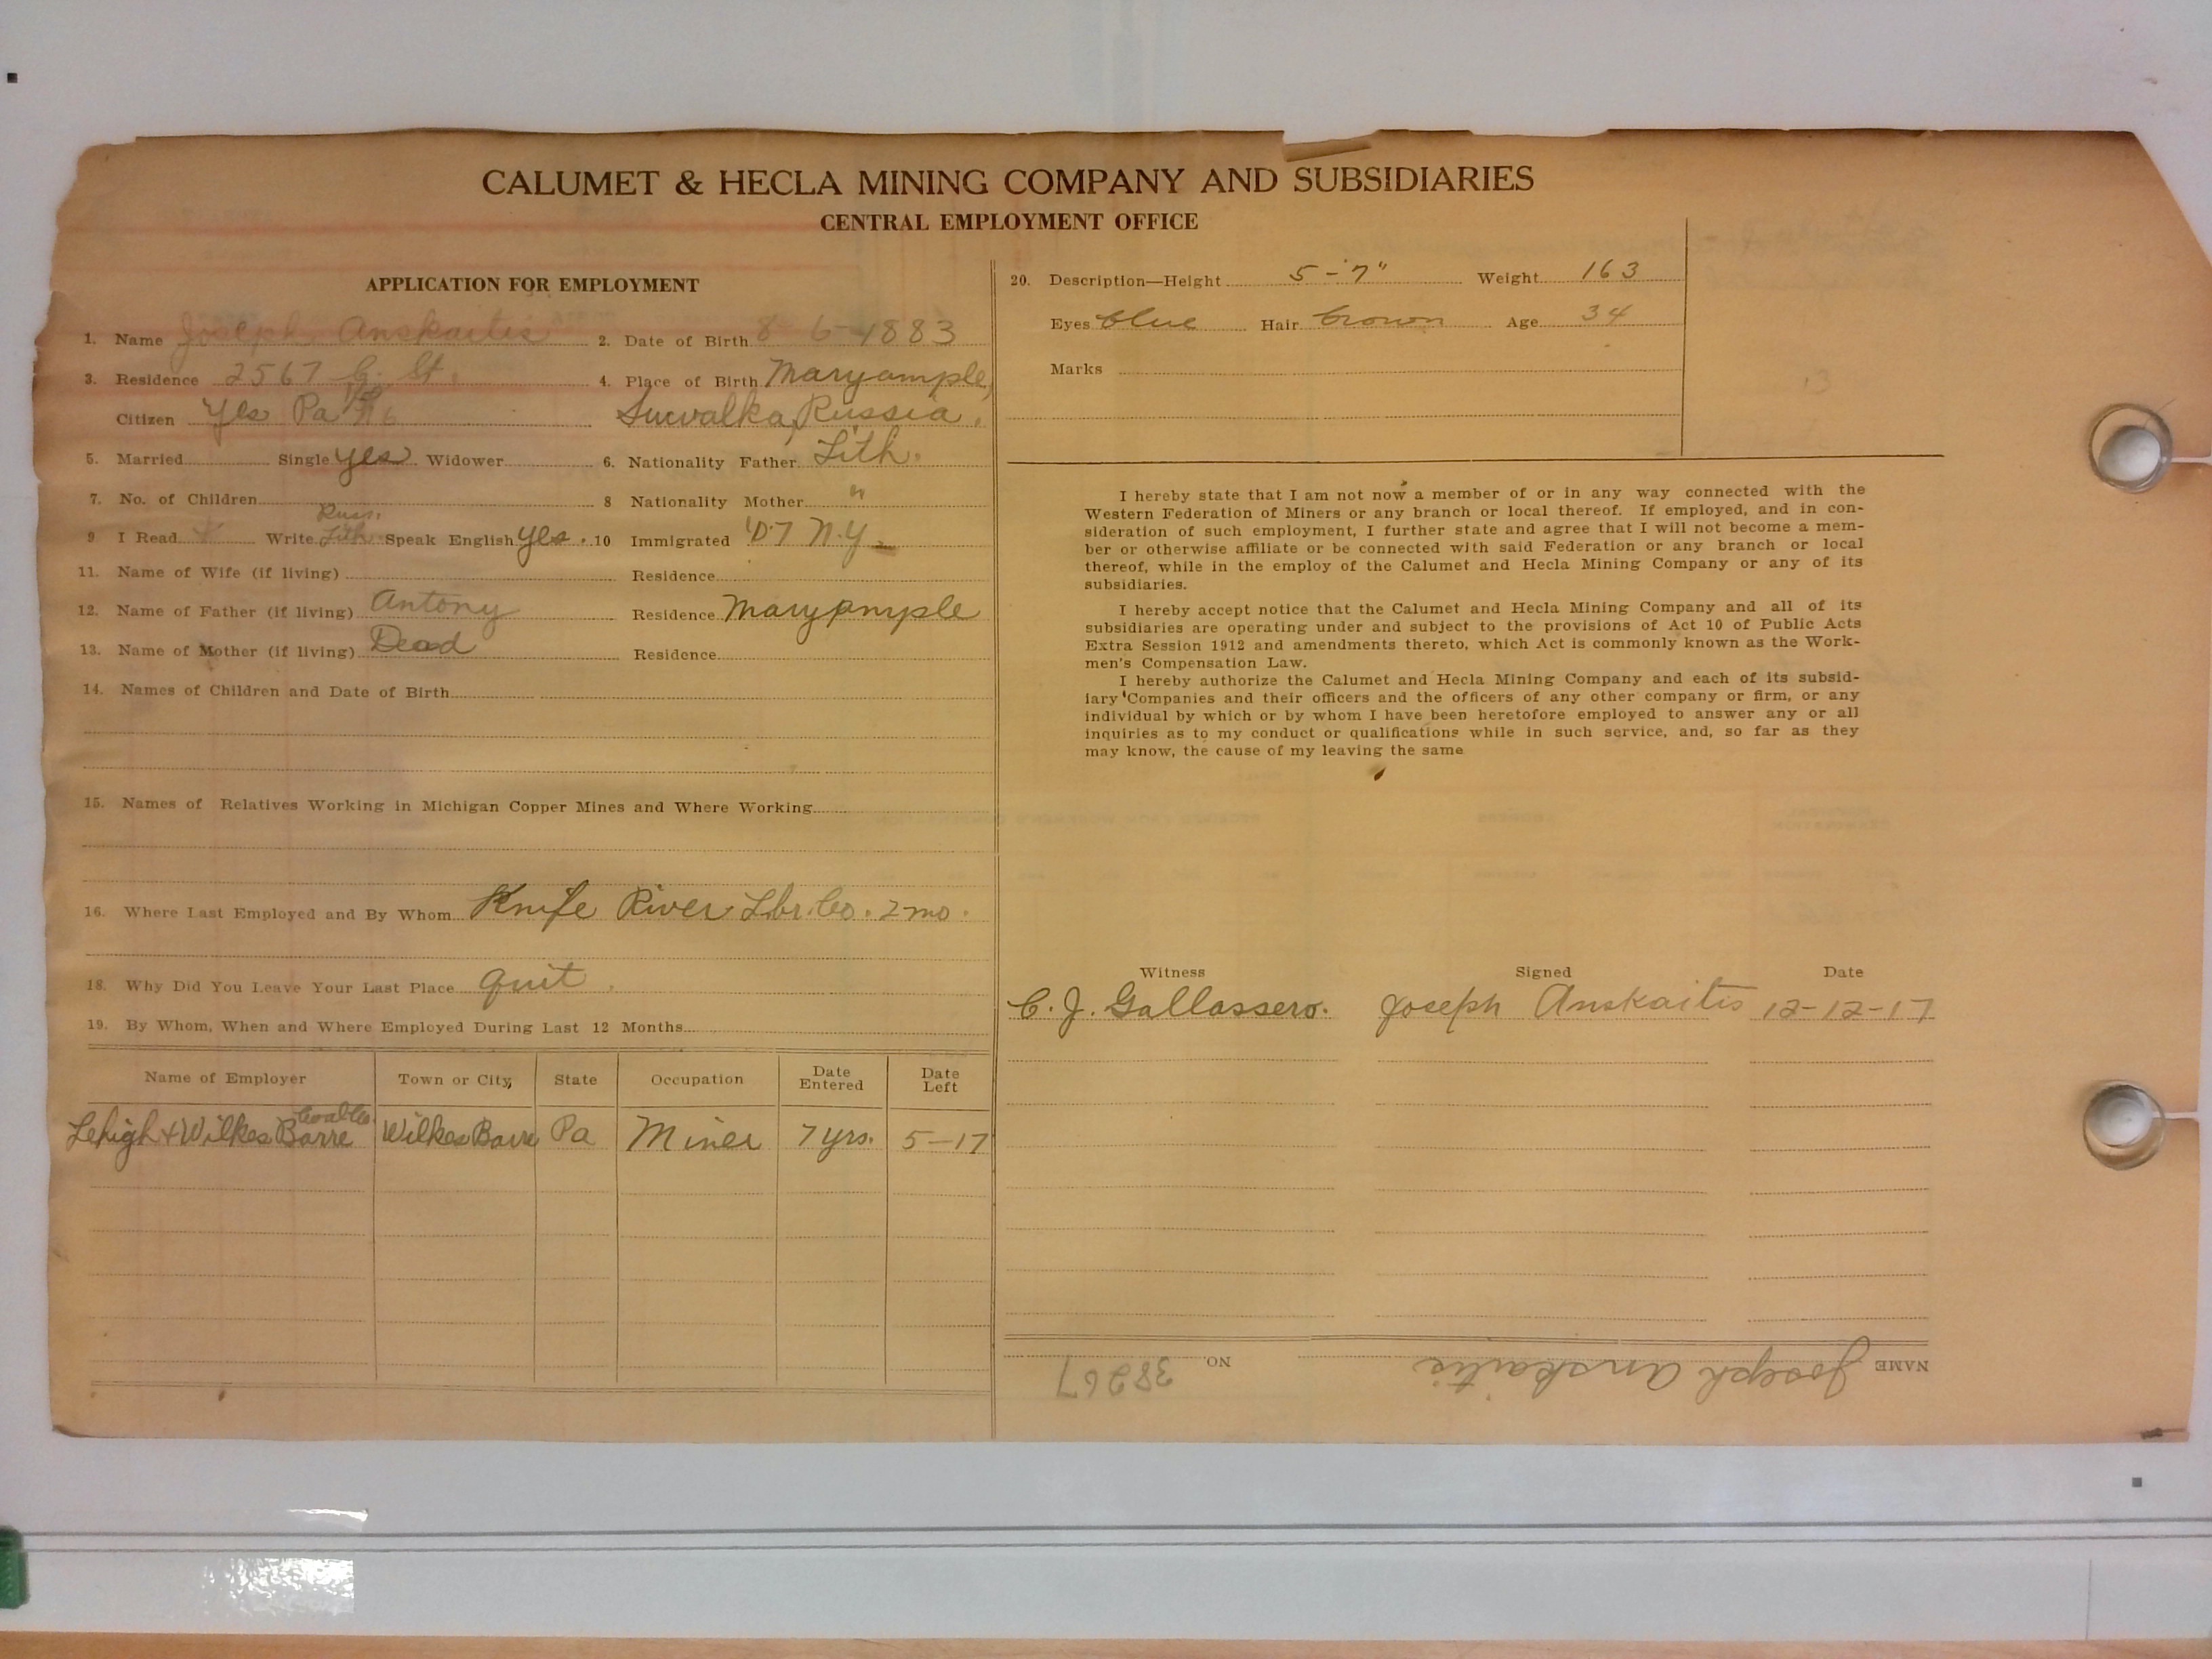 CALUMET & HECLA MINING COMPANY AND SUBSIDIARIES
CENTRAL EMPLOYMENT OFFICE
APPLICATION FOR EMPLOYMENT
1. Name Joseph Anskaitis 2. Date of Birth 8-6-1883
3. Residence 2567 C. St. 4. Place of Birth Maryample,
Citizen Yes Pa Suwalka, Russia.
5. Married Single yes Widower 6. Nationality Father Lith.
7. No. of Children 8 Nationality Mother "
Russ.
9 I Read Write Lith. Speak English yes. 10 Immigrated '07 N.Y.
11. Name of Wife (if living) Residence
12. Name of Father (if living) Antony Residence Maryample
13. Name of Mother (if living) Dead Residence
14. Names of Children and Date of Birth
15. Names of Relatives Working in Michigan Copper Mines and Where Working
16. Where Last Employed and By Whom Knife River Lbr. Co. 2 mo.
18. Why Did You Leave Your Last Place quit.
19. By Whom, When and Where Employed During Last 12 Months
Name of Employer Town or City State Occupation Date Entered Date Left
Coal Co.
Lehigh + Wilkes Barre Wilkes Barre Pa Miner 7 yrs. 5-17
20. Description—Height 5-7" Weight 163
Eyes blue Hair brown Age 34
Marks
I hereby state that I am not now a member of or in any way connected with the
Western Federation of Miners or any branch or local thereof. If employed, and in con-
sideration of such employment, I further state and agree that I will not become a mem-
ber or otherwise affiliate or be connected with said Federation or any branch or local
thereof, while in the employ of the Calumet and Hecla Mining Company or any of its
subsidiaries.
I hereby accept notice that the Calumet and Hecla Mining Company and all of its
subsidiaries are operating under and subject to the provisions of Act 10 of Public Acts
Extra Session 1912 and amendments thereto, which Act is commonly known as the Work-
men's Compensation Law.
I hereby authorize the Calumet and Hecla Mining Company and each of its subsid-
iary Companies and their officers and the officers of any other company or firm, or any
individual by which or by whom I have been heretofore employed to answer any or all
inquiries as to my conduct or qualifications while in such service, and, so far as they
may know, the cause of my leaving the same
Witness Signed Date
C. J. Gallassero. Joseph Anskaitis 12-12-17
NAME Joseph Anskaitis NO. 38267